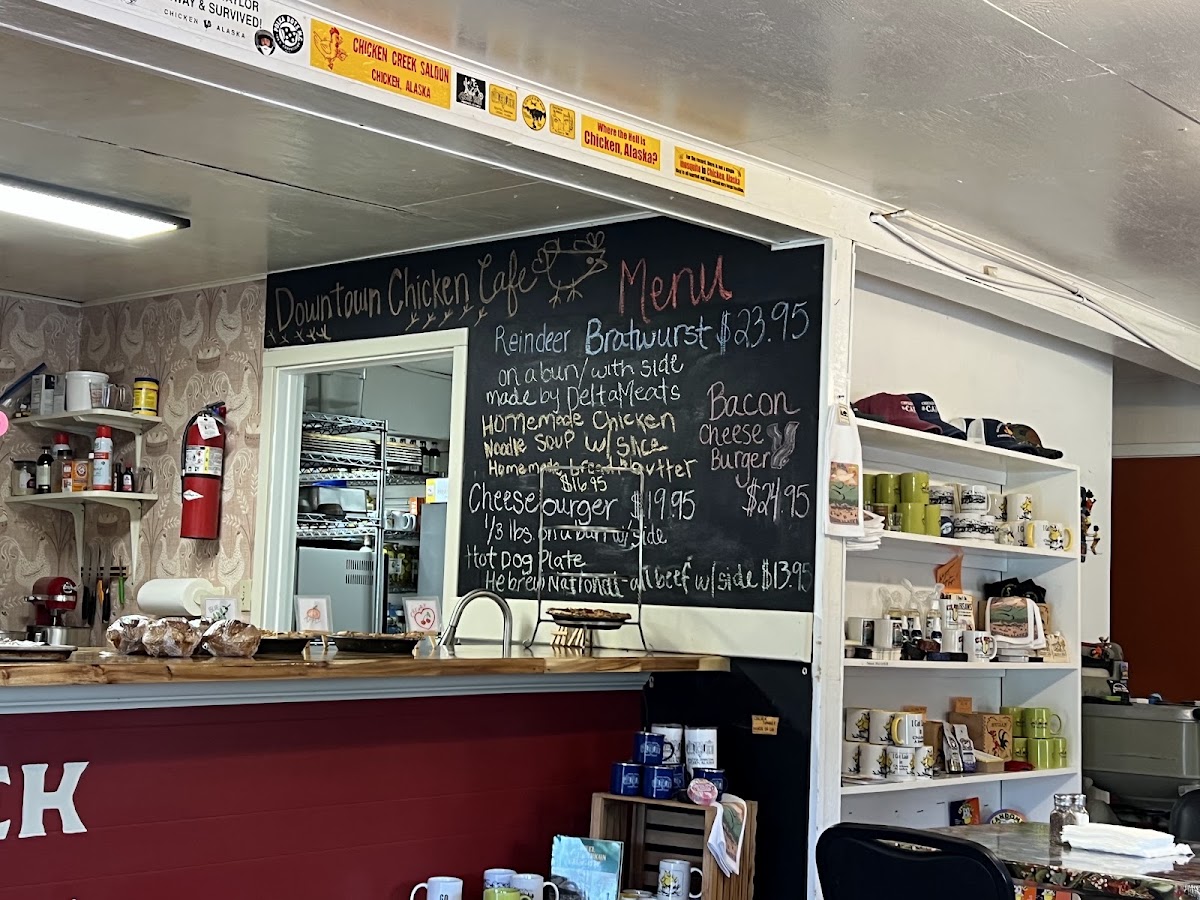 WAY & SURVIVED!
CHICKEN ALASKA
CHICKEN CREEK SALOON
CHICKEN, ALASKA
Where the Hell is
Chicken, Alaska?
mosquito in Chicken, Alaska
Downtown Chicken Cafe
Menu
Reindeer Bratwurst $23.95
on a bun/with side
made by Delta Meats
Homemade Chicken
Noodle Soup w/ slice
Homemade bread & butter
$16.95
Bacon
Cheese
Burger
$24.95
Cheeseburger $19.95
1/3 lbs. on a bun w/side
Hot Dog Plate
Hebrew National - all beef w/side $13.95
CK